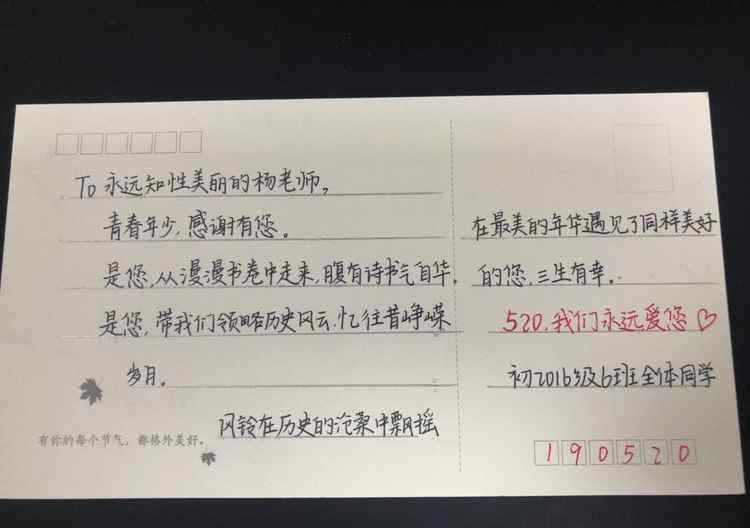 To 永远知性美丽的杨老师,
青春年少,感谢有您。
是您,从漫漫书卷中走来,腹有诗书气自华。
是您,带我们领略历史风云.忆往昔峥嵘
岁月.
风铃在历史的沧桑中飘摇
有你的每个节气,都格外美好。
在最美的年华遇见了同样美好
的您,三生有幸.
520,我们永远爱您♡
初2016级6班全体同学
190520